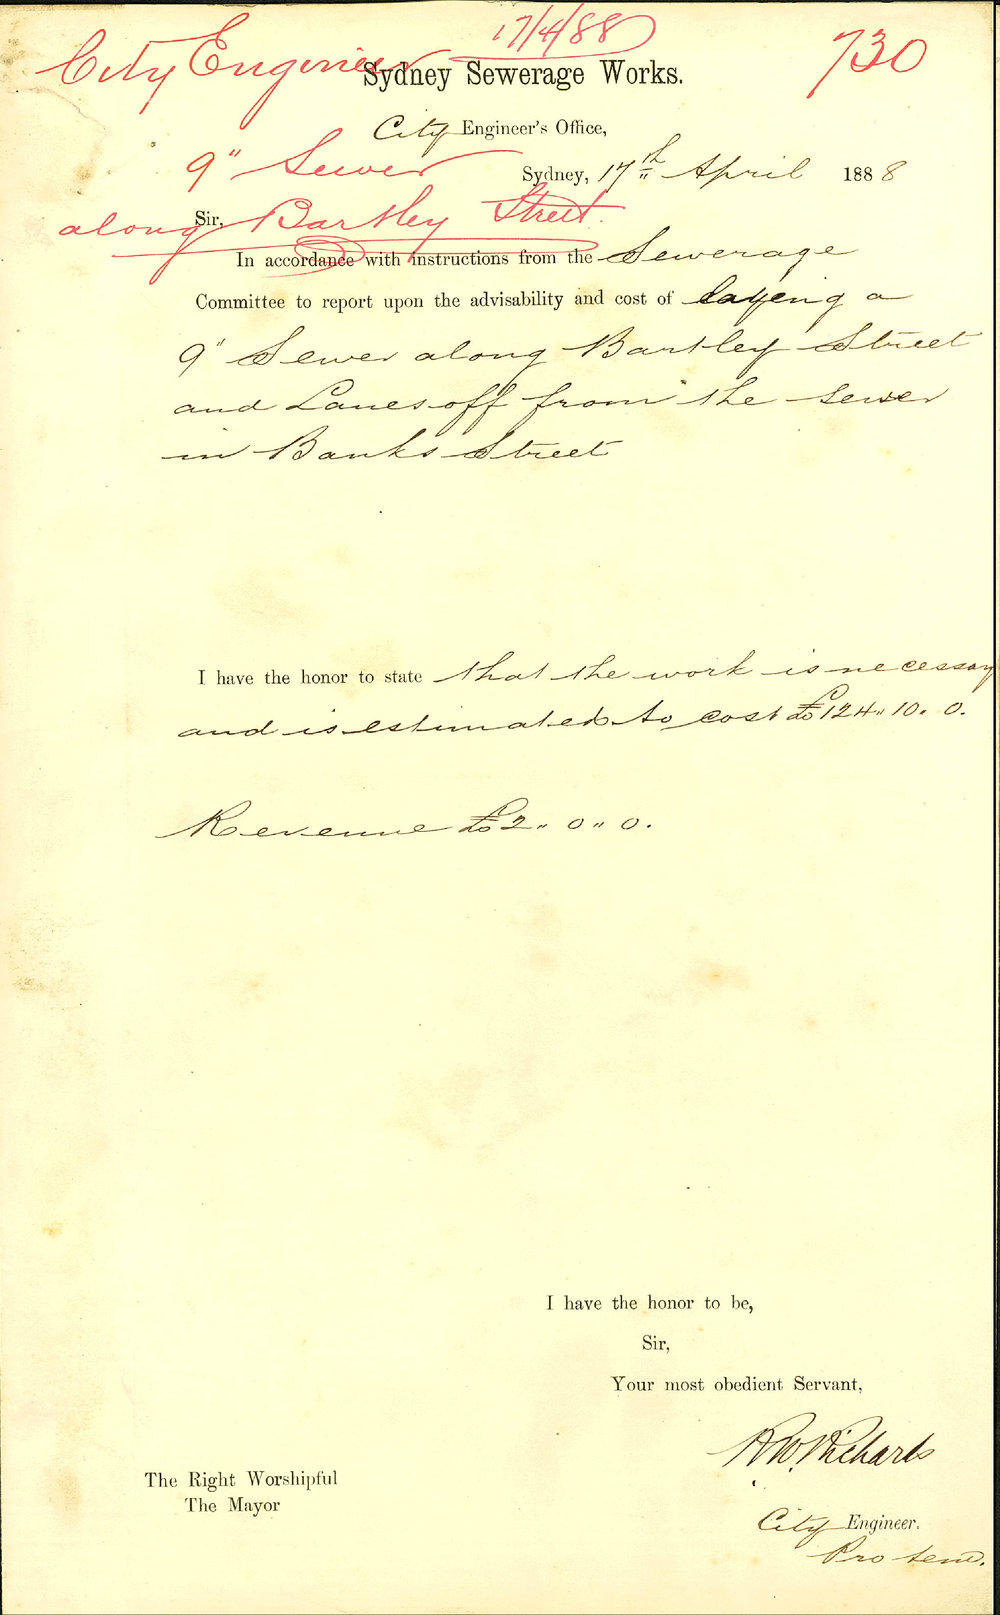 17/4/88
City Engineer
730
Sydney Sewerage Works.
City Engineer's Office,
9" Sewer
Sydney, 17th April 1888
along Bartley Street.
Sir,
In accordance with instructions from the Sewerage
Committee to report upon the advisability and cost of laying a
9" Sewer along Bartley Street
and Lanes off from the sewer
in Banks Street
I have the honor to state that the work is necessary
and is estimated to cost £124" 10. 0.
Revenue £2" 0" 0.
I have the honor to be,
Sir,
Your most obedient Servant,
R W Richards
The Right Worshipful
The Mayor
City Engineer.
Pro tem.